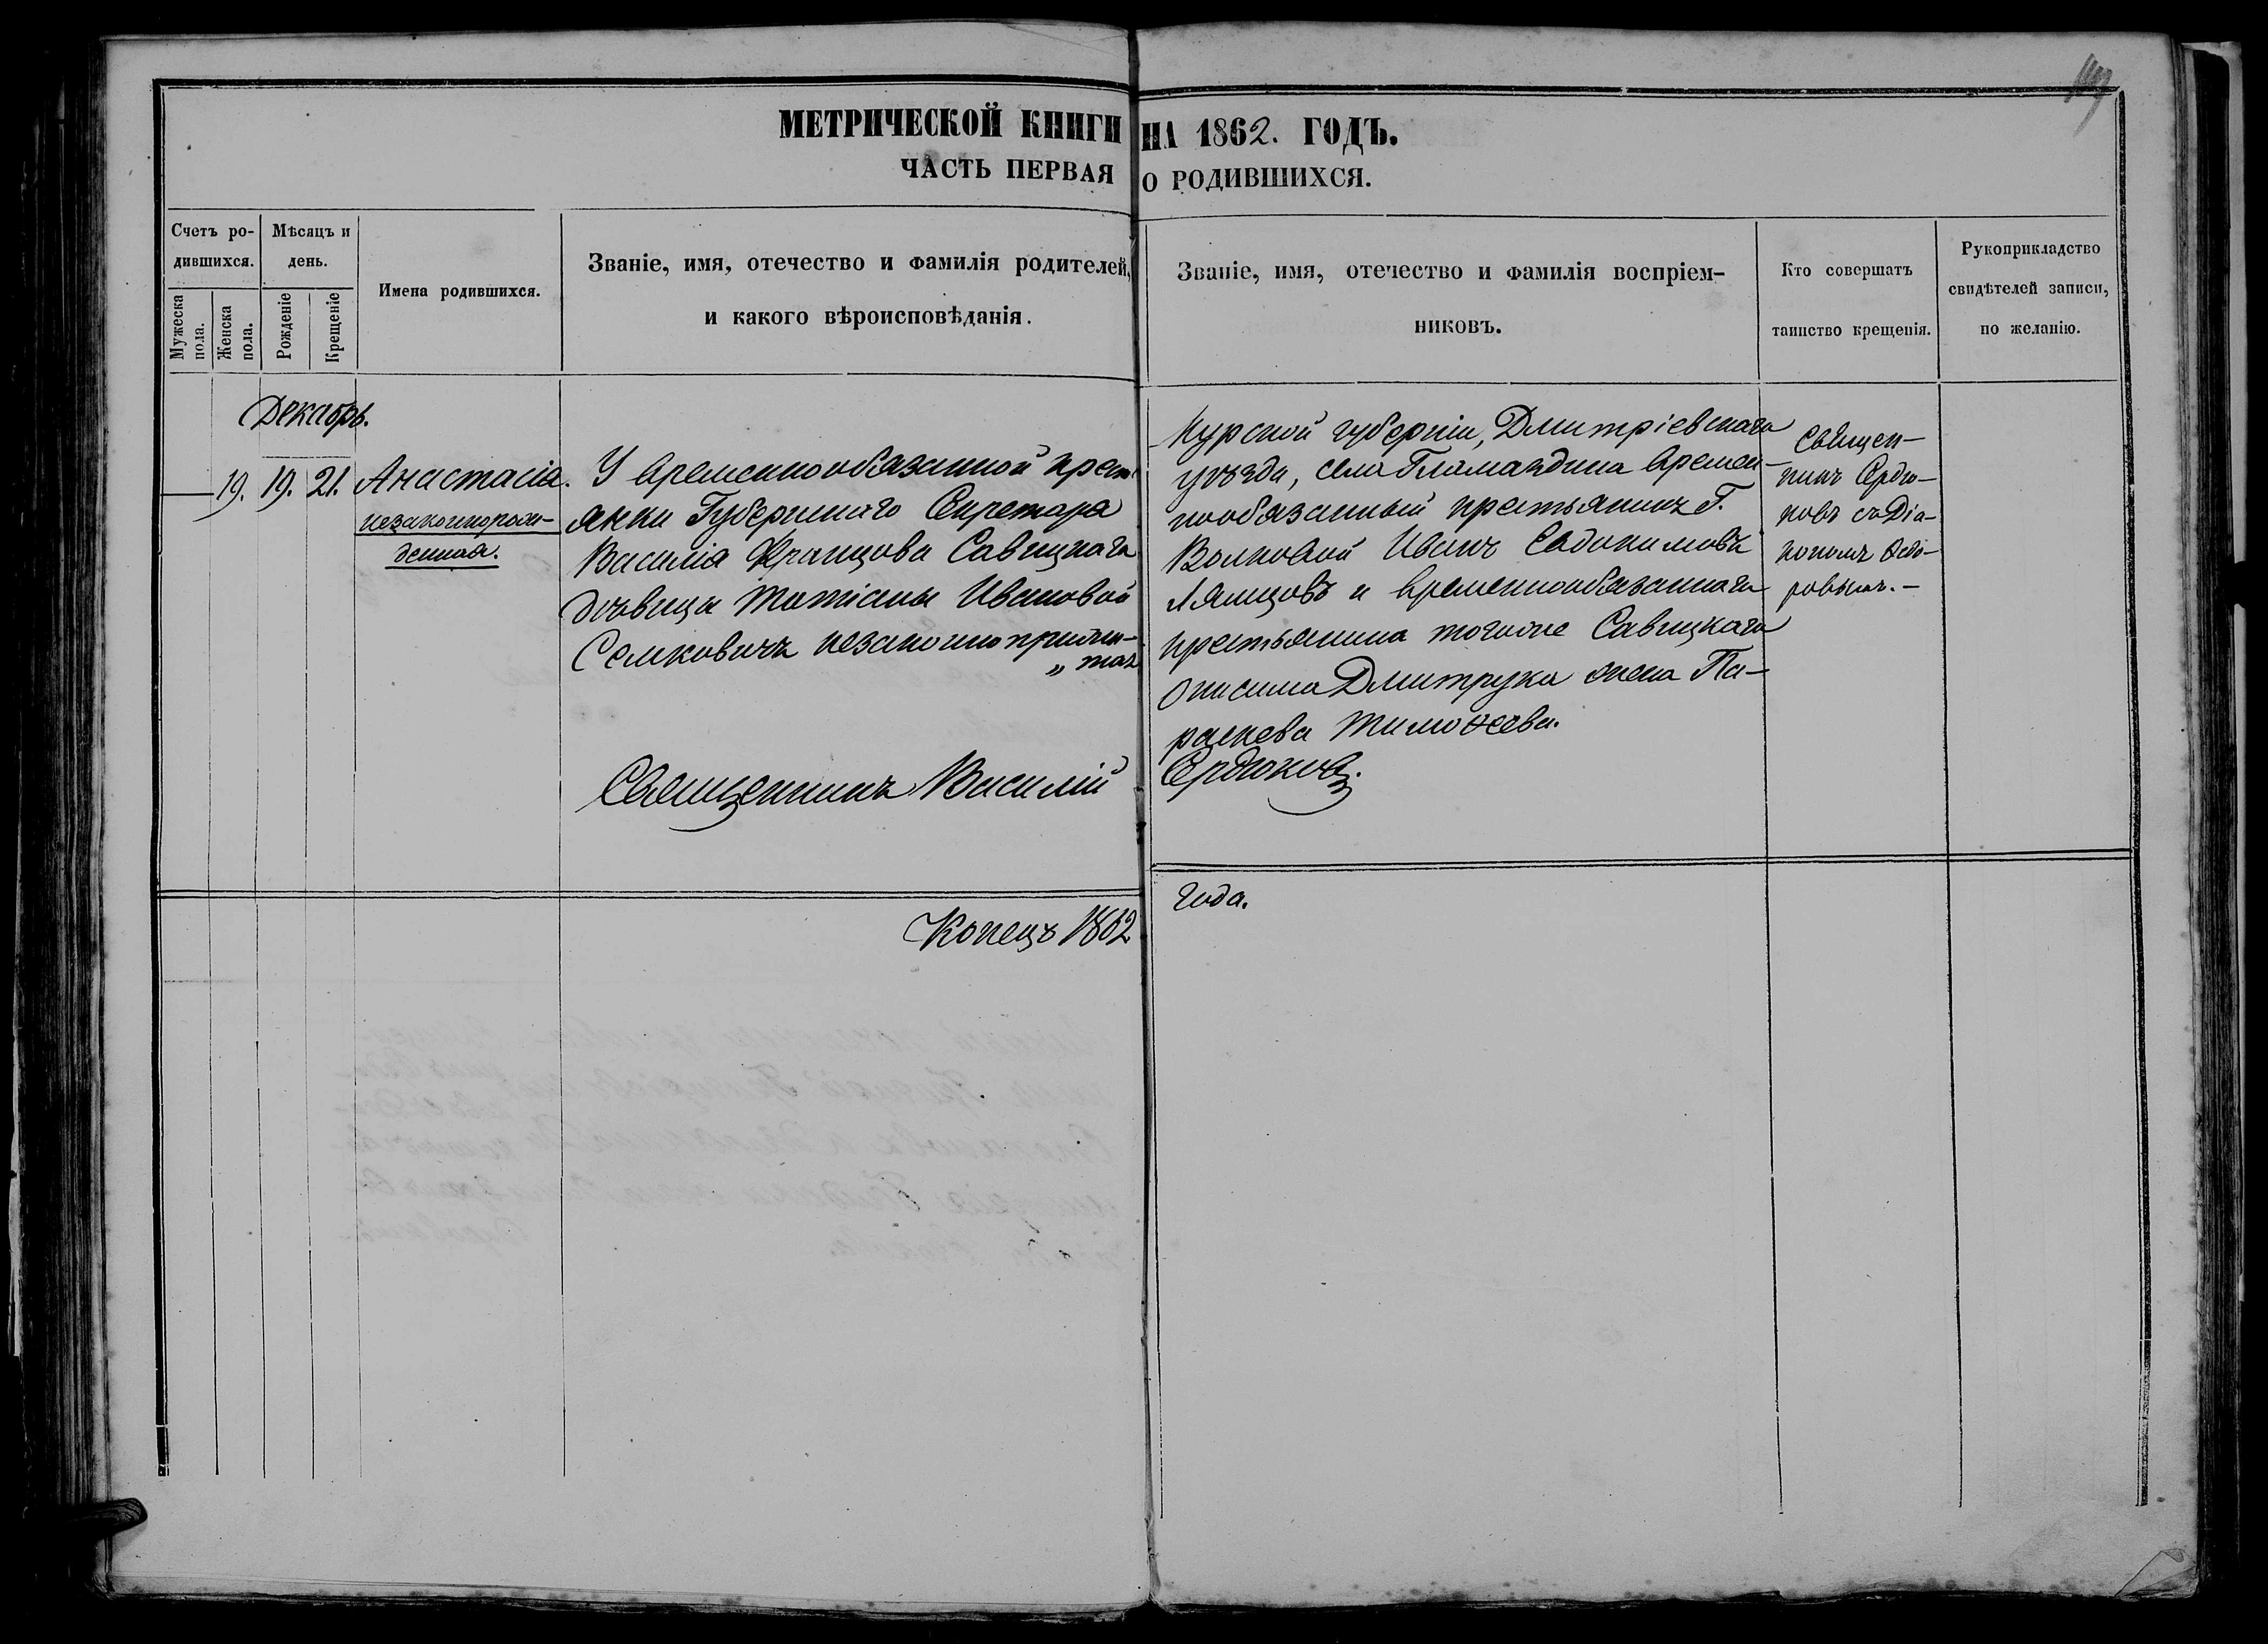 МЕТРИЧЕСКОЙ КНИГИ НА 1862. ГОДЪ.
ЧАСТЬ ПЕРВАЯ О РОДИВШИХСЯ.
Счетъ ро-
дившихся.
Мужеска
пола.
Женска
пола.
Мѣсяцъ и
день.
Рожденіе
Крещеніе
Имена родившихся.
Званіе, имя, отечество и фамилія родителей,
и какого вѣроисповѣданія.
Званіе, имя, отечество и фамилія воспріем-
никовъ.
Кто совершатъ
таинство крещенія.
Рукоприкладство
свидѣтелей записи,
по желанію.
Декабрь.
19. 19. 21.
Анастасія.
незаконнорож-
денная.
У временнообязанной крест
янки Губернскаго Секретаря
Василія Францова Савицкаго
дѣвицы Татіаны Ивановой
Семковичъ незаконно прижи-
„ тая
Курской губерніи, Дмитріевскаго
уѣзда, села времен-
нообязанный крестьянинъ Г.
Волковой Иванъ Евдокимовъ
Лямцовъ и временнообязаннаго
крестьянина тогоже Савицкаго
Онисима Дмитрука жена Па-
раскева Тимоѳеева.
Священ-
никъ Сердю-
ковъ съ Діа-
кономъ Ѳедо-
ровымъ. -
Священникъ Василій Сердюковъ.
Конецъ 1862 года.